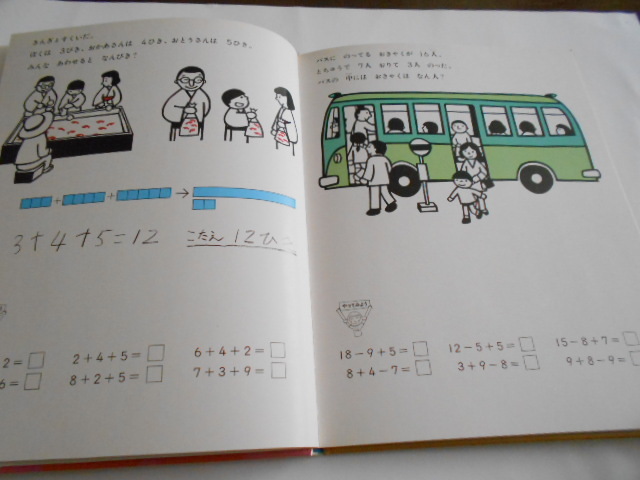 きんぎょすくいだ。
ぼくは 3びき、おかあさんは 4ひき、おとうさんは 5ひき。
みんな あわせると なんびき？
3+4+5=12
こたえ 12ひき
2=
2+4+5=
6+4+2=
6=
8+2+5=
7+3+9=
バスに のってる おきゃくが 16人。
とちゅうで 7人 おりて 3人 のった。
バスの 中には おきゃくは なん人？
やってみよう
18-9+5=
12-5+5=
15-8+7=
8+4-7=
3+9-8=
9+8-9=